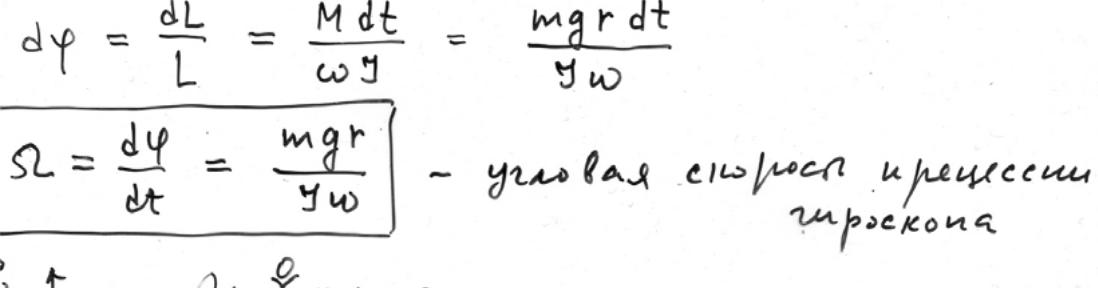 dφ = dL/L = M dt/ωJ = mgr dt/Jω
Ω = dφ/dt = mgr/Jω - угловая скорость прецессии
гироскопа